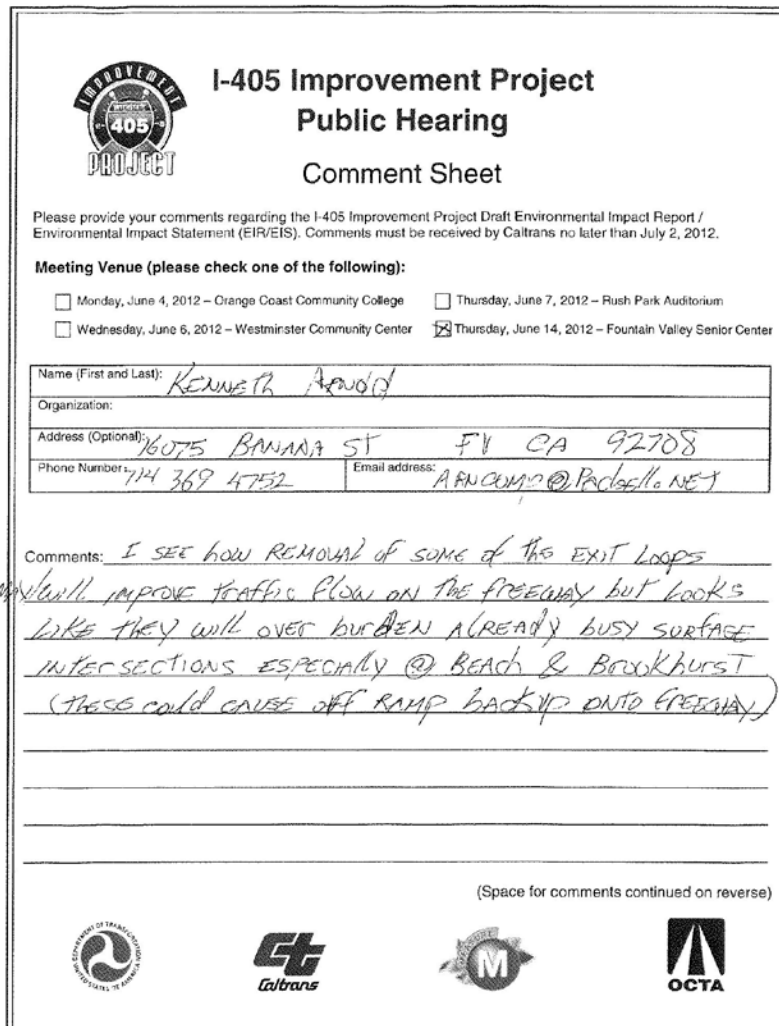 IMPROVEMENT
INTERSTATE
405
PROJECT
I-405 Improvement Project
Public Hearing
Comment Sheet
Please provide your comments regarding the I-405 Improvement Project Draft Environmental Impact Report /
Environmental Impact Statement (EIR/EIS). Comments must be received by Caltrans no later than July 2, 2012.
Meeting Venue (please check one of the following):
Monday, June 4, 2012 – Orange Coast Community College
Thursday, June 7, 2012 – Rush Park Auditorium
Wednesday, June 6, 2012 – Westminster Community Center
Thursday, June 14, 2012 – Fountain Valley Senior Center
Name (First and Last): KENNETH Arnold
Organization:
Address (Optional): 16075 BANANA ST FV CA 92708
Phone Number: 714 369 4752
Email address:
Comments: I SEE how REMOVAL of SOME of the EXIT LOOPS
MAY/will IMPROVE traffic flow ON THE FREEWAY but Looks
LIKE they will OVER burDEN AlREADy busy SURFACE
INTERSECTIONS ESPECIAlly @ BEACH & Brookhurst
(THESE could CAUSE off RAMP bACKUP ONTO FREEWAY)
(Space for comments continued on reverse)
DEPARTMENT OF TRANSPORTATION
UNITED STATES OF AMERICA
Caltrans
MEASURE
M
OCTA